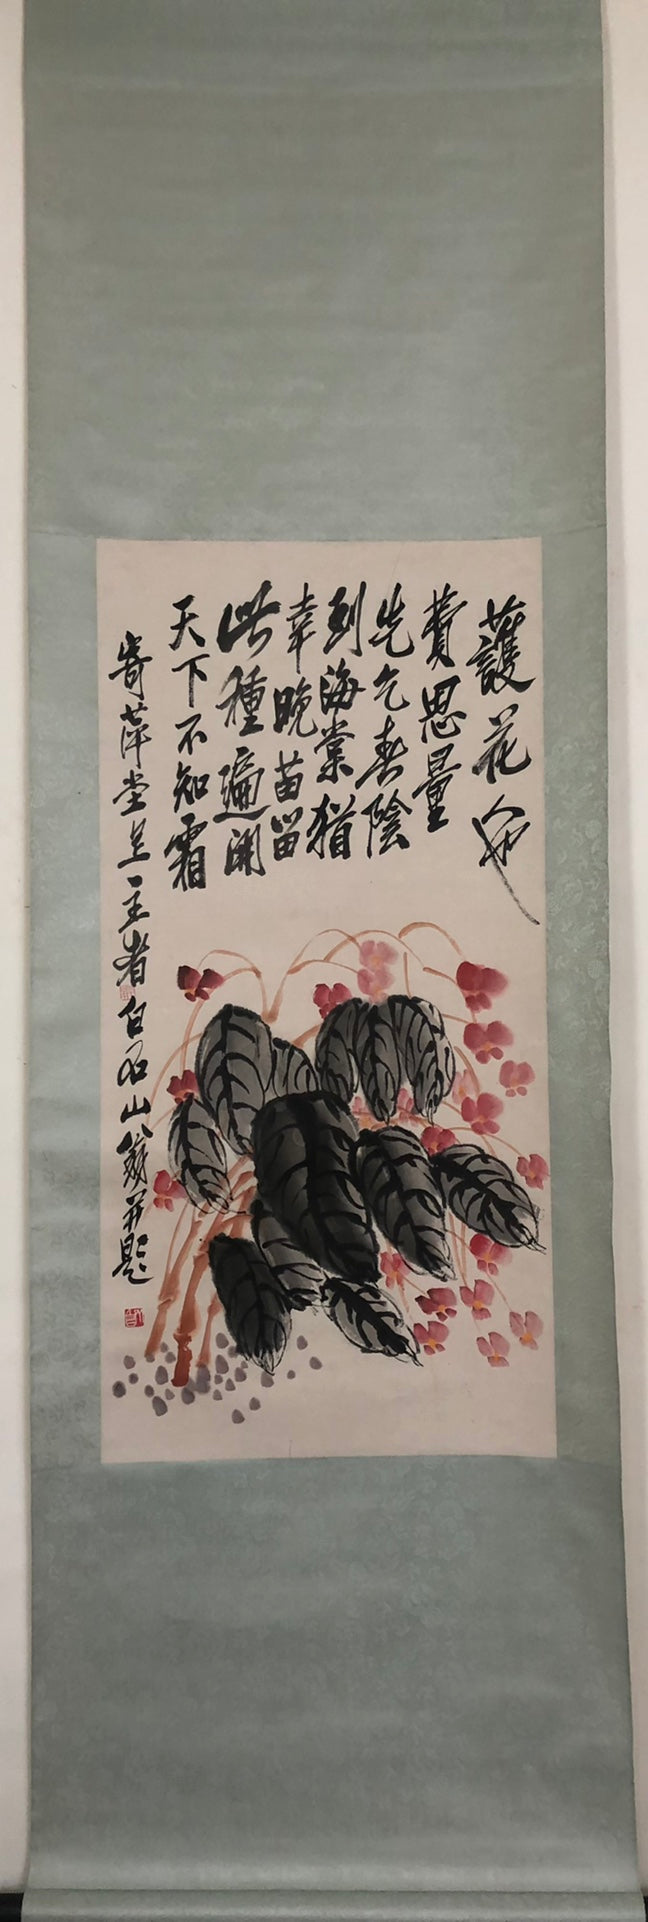 護花何必
費思量
先乞春陰
到海棠猶
幸晚苗留
此種遍開
天下不知霜
寄萍堂上主者白石山翁并題